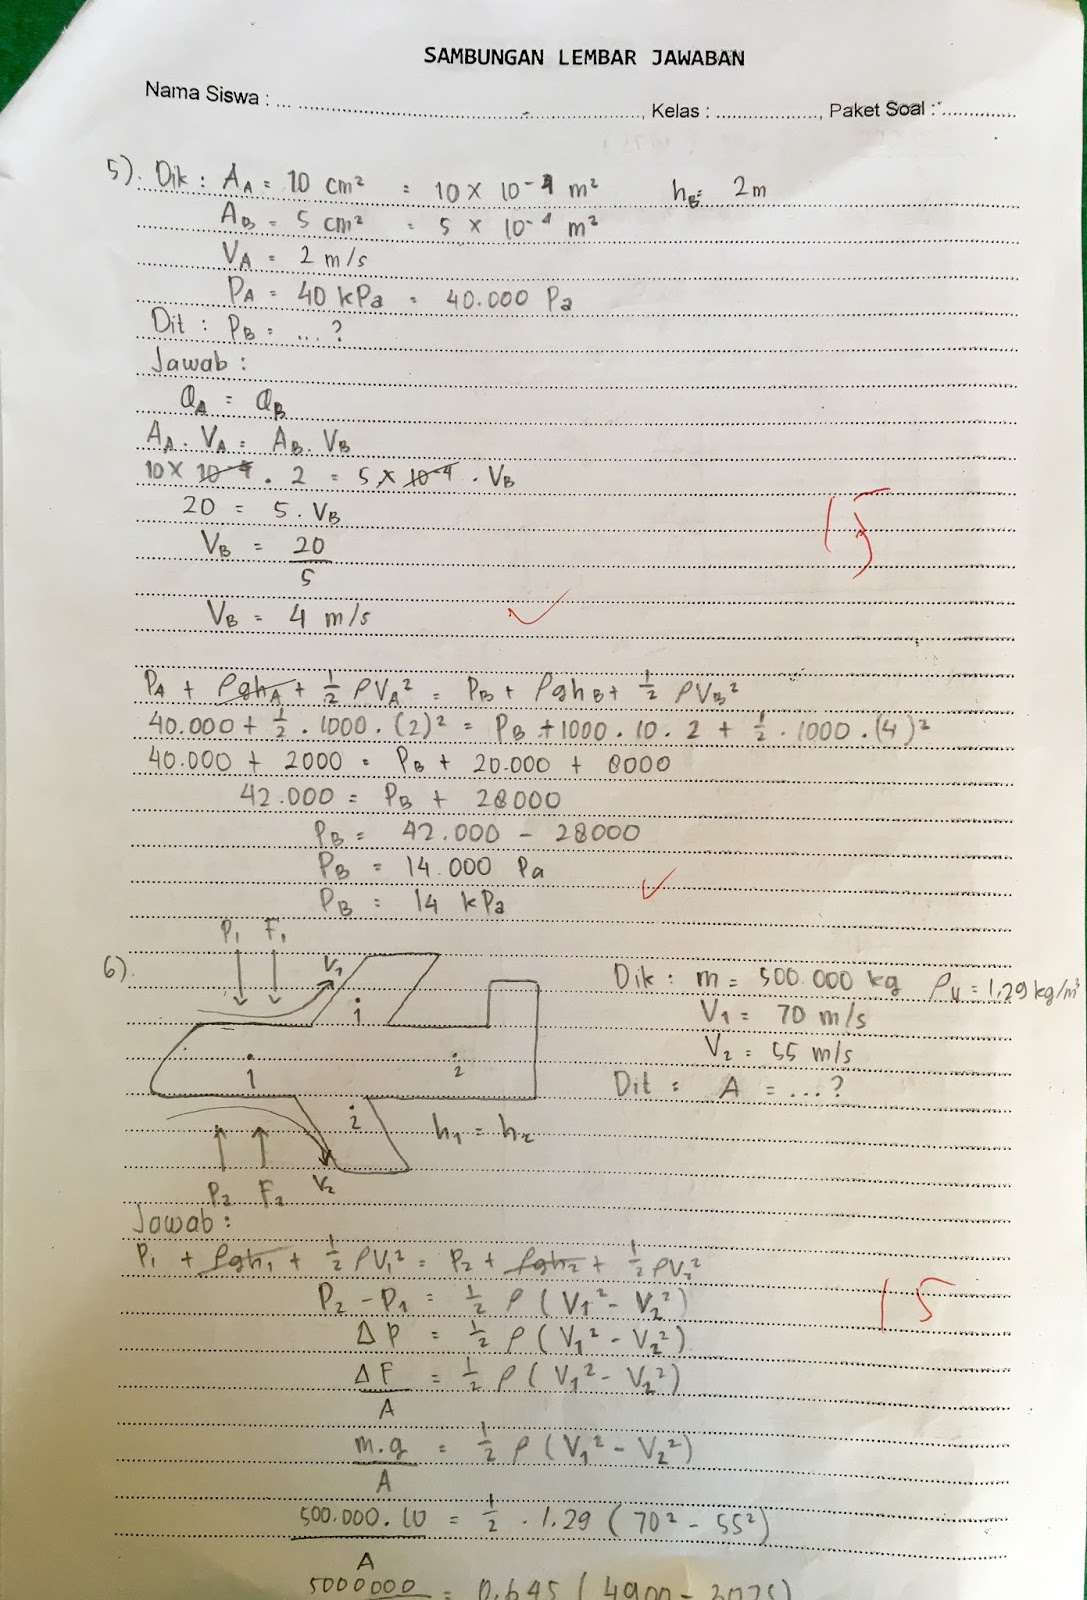 SAMBUNGAN LEMBAR JAWABAN
Nama Siswa : ... ............, Kelas : ............, Paket Soal : ............
5). Dik : A_A = 10 cm² = 10 × 10⁻⁴ m² h_B = 2 m
A_B = 5 cm² = 5 × 10⁻⁴ m²
V_A = 2 m/s
P_A = 40 kPa = 40.000 Pa
Dit : P_B = ... ?
Jawab :
Q_A = Q_B
A_A . V_A = A_B . V_B
10 × 10⁻⁴ . 2 = 5 × 10⁻⁴ . V_B
20 = 5 . V_B
V_B = 20/5
15
V_B = 4 m/s ✓
P_A + ρgh_A + 1/2 ρV_A² = P_B + ρgh_B + 1/2 ρV_B²
40.000 + 1/2 . 1000 . (2)² = P_B + 1000 . 10 . 2 + 1/2 . 1000 . (4)²
40.000 + 2000 = P_B + 20.000 + 8000
42.000 = P_B + 28000
P_B = 42.000 - 28000
P_B = 14.000 Pa
P_B = 14 kPa ✓
6).
P₁ F₁
V₁
1
1 2
2
h₁ = h₂
P₂ F₂ V₂
Dik : m = 500.000 kg ρ_u = 1,29 kg/m³
V₁ = 70 m/s
V₂ = 55 m/s
Dit : A = ... ?
Jawab :
P₁ + ρgh₁ + 1/2 ρV₁² = P₂ + ρgh₂ + 1/2 ρV₂²
P₂ - P₁ = 1/2 ρ (V₁² - V₂²)
15
ΔP = 1/2 ρ (V₁² - V₂²)
ΔF/A = 1/2 ρ (V₁² - V₂²)
m.g/A = 1/2 ρ (V₁² - V₂²)
500.000 . 10/A = 1/2 . 1.29 (70² - 55²)
5000000 = 0,645 ( 4900 - 3025)